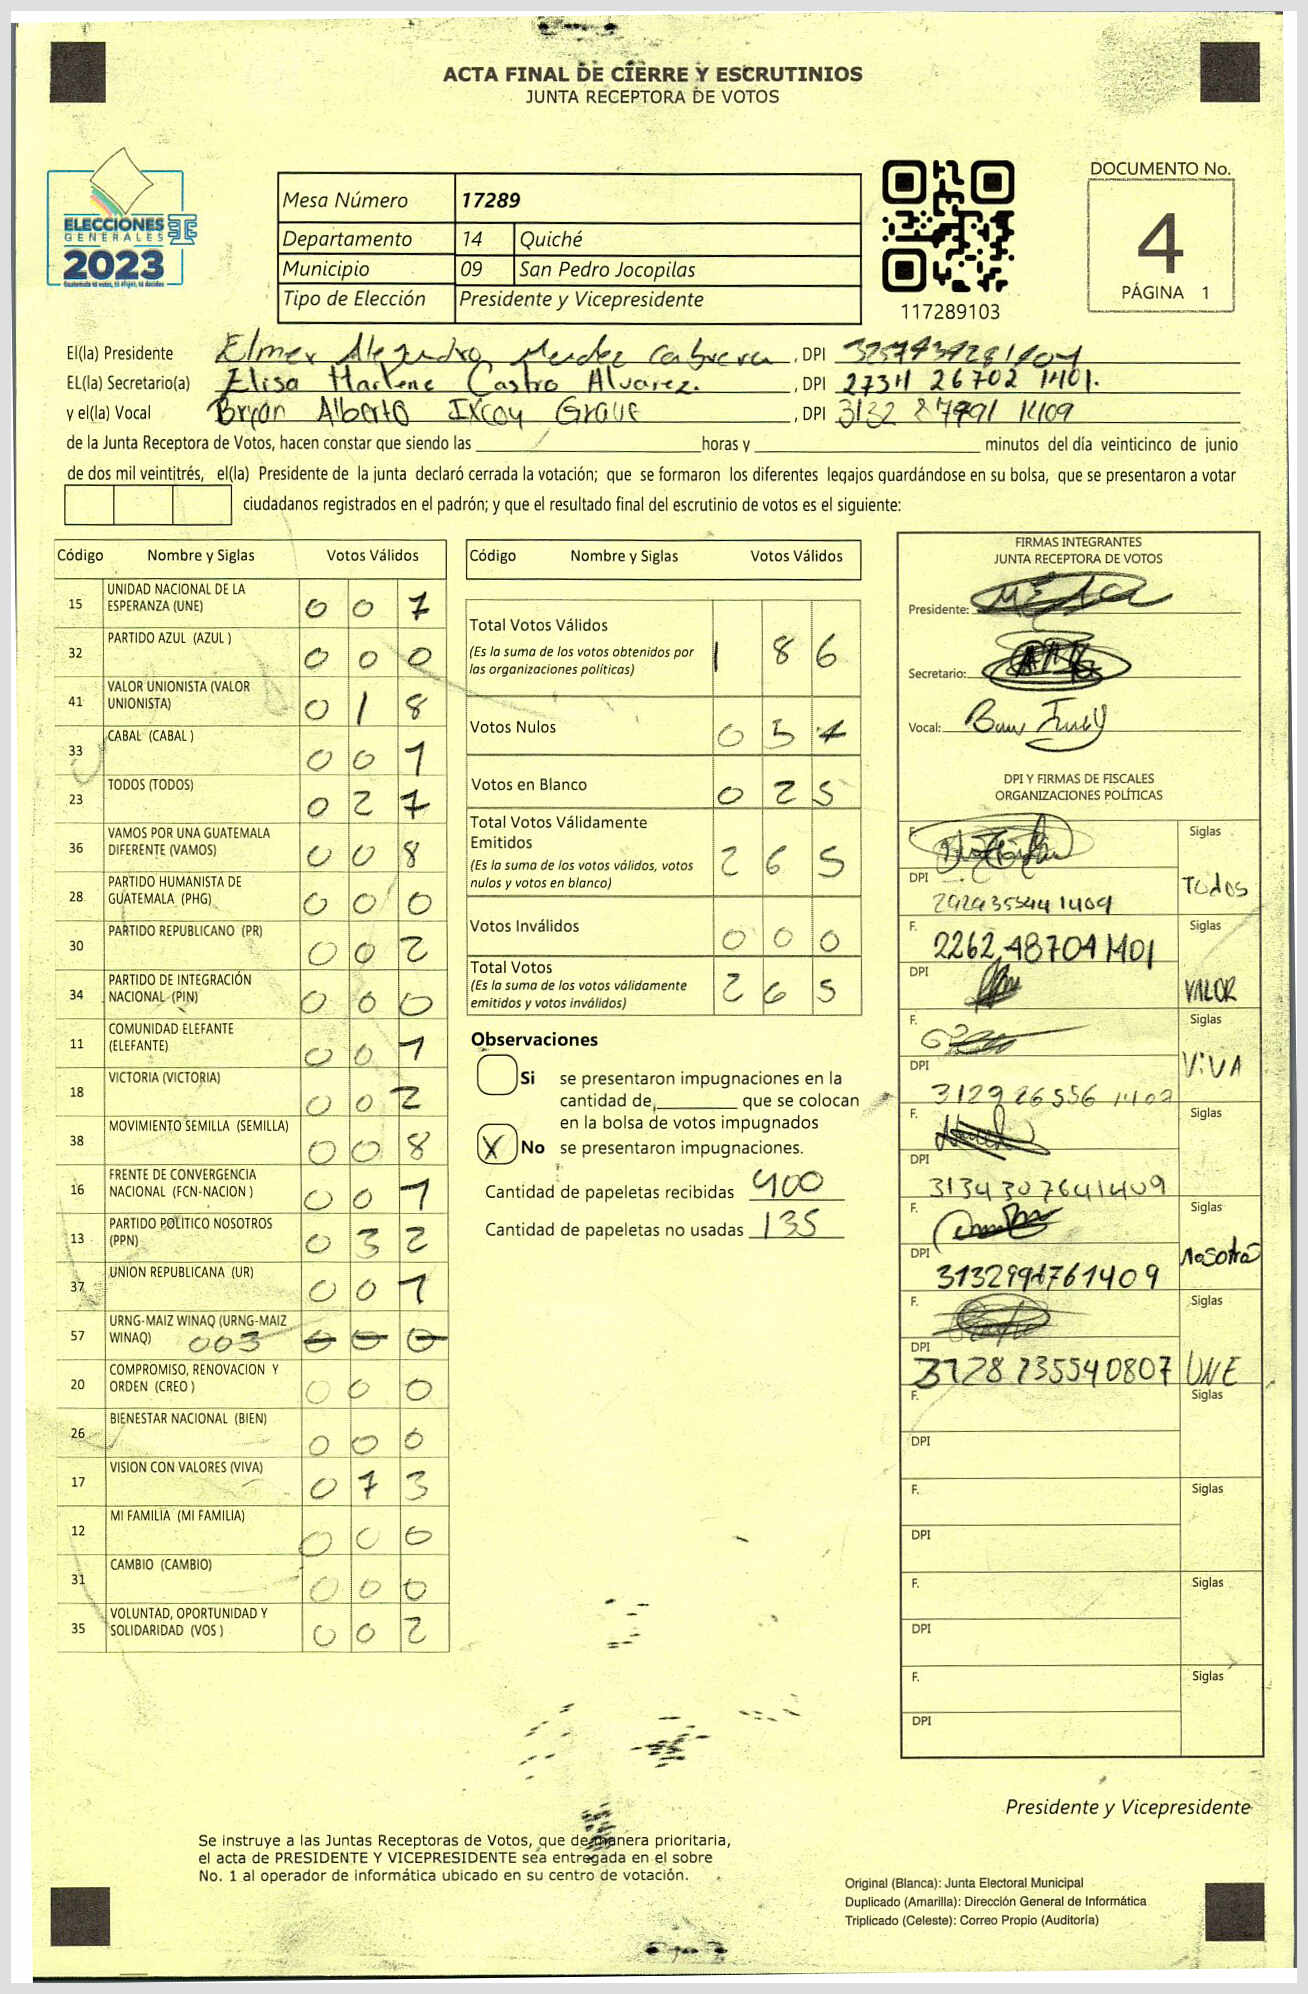 ACTA FINAL DE CIERRE Y ESCRUTINIOS
JUNTA RECEPTORA DE VOTOS
ELECCIONES
GENERALES
2023
Mesa Número 17289
Departamento 14 Quiché
Municipio 09 San Pedro Jocopilas
Tipo de Elección Presidente y Vicepresidente
117289103
DOCUMENTO No.
4
PÁGINA 1
El(la) Presidente Elmer Alejandro Mendez Cabrera, DPI
EL(la) Secretario(a) Elisa Marlene Castro Alvarez. , DPI 2734 26702 1401.
y el(la) Vocal Bryan Alberto Ixcoy Grave , DPI 3132 87991 1409
de la Junta Receptora de Votos, hacen constar que siendo las horas y minutos del día veinticinco de junio
de dos mil veintitrés, el(la) Presidente de la junta declaró cerrada la votación; que se formaron los diferentes legajos guardándose en su bolsa, que se presentaron a votar
ciudadanos registrados en el padrón; y que el resultado final del escrutinio de votos es el siguiente:
Código Nombre y Siglas Votos Válidos
15 UNIDAD NACIONAL DE LA ESPERANZA (UNE) 0 0 7
32 PARTIDO AZUL (AZUL ) 0 0 0
41 VALOR UNIONISTA (VALOR UNIONISTA) 0 1 8
33 CABAL (CABAL ) 0 0 1
23 TODOS (TODOS) 0 2 7
36 VAMOS POR UNA GUATEMALA DIFERENTE (VAMOS) 0 0 8
28 PARTIDO HUMANISTA DE GUATEMALA (PHG) 0 0 0
30 PARTIDO REPUBLICANO (PR) 0 0 2
34 PARTIDO DE INTEGRACIÓN NACIONAL (PIN) 0 0 0
11 COMUNIDAD ELEFANTE (ELEFANTE) 0 0 1
18 VICTORIA (VICTORIA) 0 0 2
38 MOVIMIENTO SEMILLA (SEMILLA) 0 0 8
16 FRENTE DE CONVERGENCIA NACIONAL (FCN-NACION ) 0 0 1
13 PARTIDO POLITICO NOSOTROS (PPN) 0 3 2
37 UNION REPUBLICANA (UR) 0 0 1
57 URNG-MAIZ WINAQ (URNG-MAIZ WINAQ) 003 0 0 0
20 COMPROMISO, RENOVACION Y ORDEN (CREO ) 0 0 0
26 BIENESTAR NACIONAL (BIEN) 0 0 0
17 VISION CON VALORES (VIVA) 0 7 3
12 MI FAMILIA (MI FAMILIA) 0 0 0
31 CAMBIO (CAMBIO) 0 0 0
35 VOLUNTAD, OPORTUNIDAD Y SOLIDARIDAD (VOS ) 0 0 2
Código Nombre y Siglas Votos Válidos
Total Votos Válidos 1 8 6
(Es la suma de los votos obtenidos por
las organizaciones políticas)
Votos Nulos 0 5 4
Votos en Blanco 0 2 5
Total Votos Válidamente
Emitidos 2 6 5
(Es la suma de los votos válidos, votos
nulos y votos en blanco)
Votos Inválidos 0 0 0
Total Votos 2 6 5
(Es la suma de los votos válidamente
emitidos y votos inválidos)
Observaciones
Si se presentaron impugnaciones en la
cantidad de, que se colocan
en la bolsa de votos impugnados
X No se presentaron impugnaciones.
Cantidad de papeletas recibidas 400
Cantidad de papeletas no usadas 135
FIRMAS INTEGRANTES
JUNTA RECEPTORA DE VOTOS
Presidente:
Secretario:
Vocal:
DPI Y FIRMAS DE FISCALES
ORGANIZACIONES POLÍTICAS
F. Siglas
DPI 2929355441409 Todos
F. 2262 48704 1401 Siglas
DPI VALOR
F. Siglas
DPI 3129 26556 1409 ViVA
F. Siglas
DPI 3134307641409
F. Siglas
DPI Nosotros
F. Siglas
DPI 3128 235540807 UNE
F. Siglas
DPI
F. Siglas
DPI
F. Siglas
DPI
F. Siglas
DPI
Presidente y Vicepresidente
Se instruye a las Juntas Receptoras de Votos, que de manera prioritaria,
el acta de PRESIDENTE Y VICEPRESIDENTE sea entregada en el sobre
No. 1 al operador de informática ubicado en su centro de votación.
Original (Blanca): Junta Electoral Municipal
Duplicado (Amarilla): Dirección General de Informática
Triplicado (Celeste): Correo Propio (Auditoría)